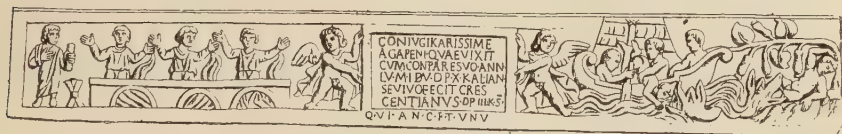 CONIVGIKARISSIME
AGAPENI·QVAEVIXIT
CVMCONPARESVOANN·
LV·MI DV·D·P·X·KALIAN·
SEVIVOFECITCRES
CENTIANVS·DP IIIK·S·
Q·VI·AN·C·F·T·VNV